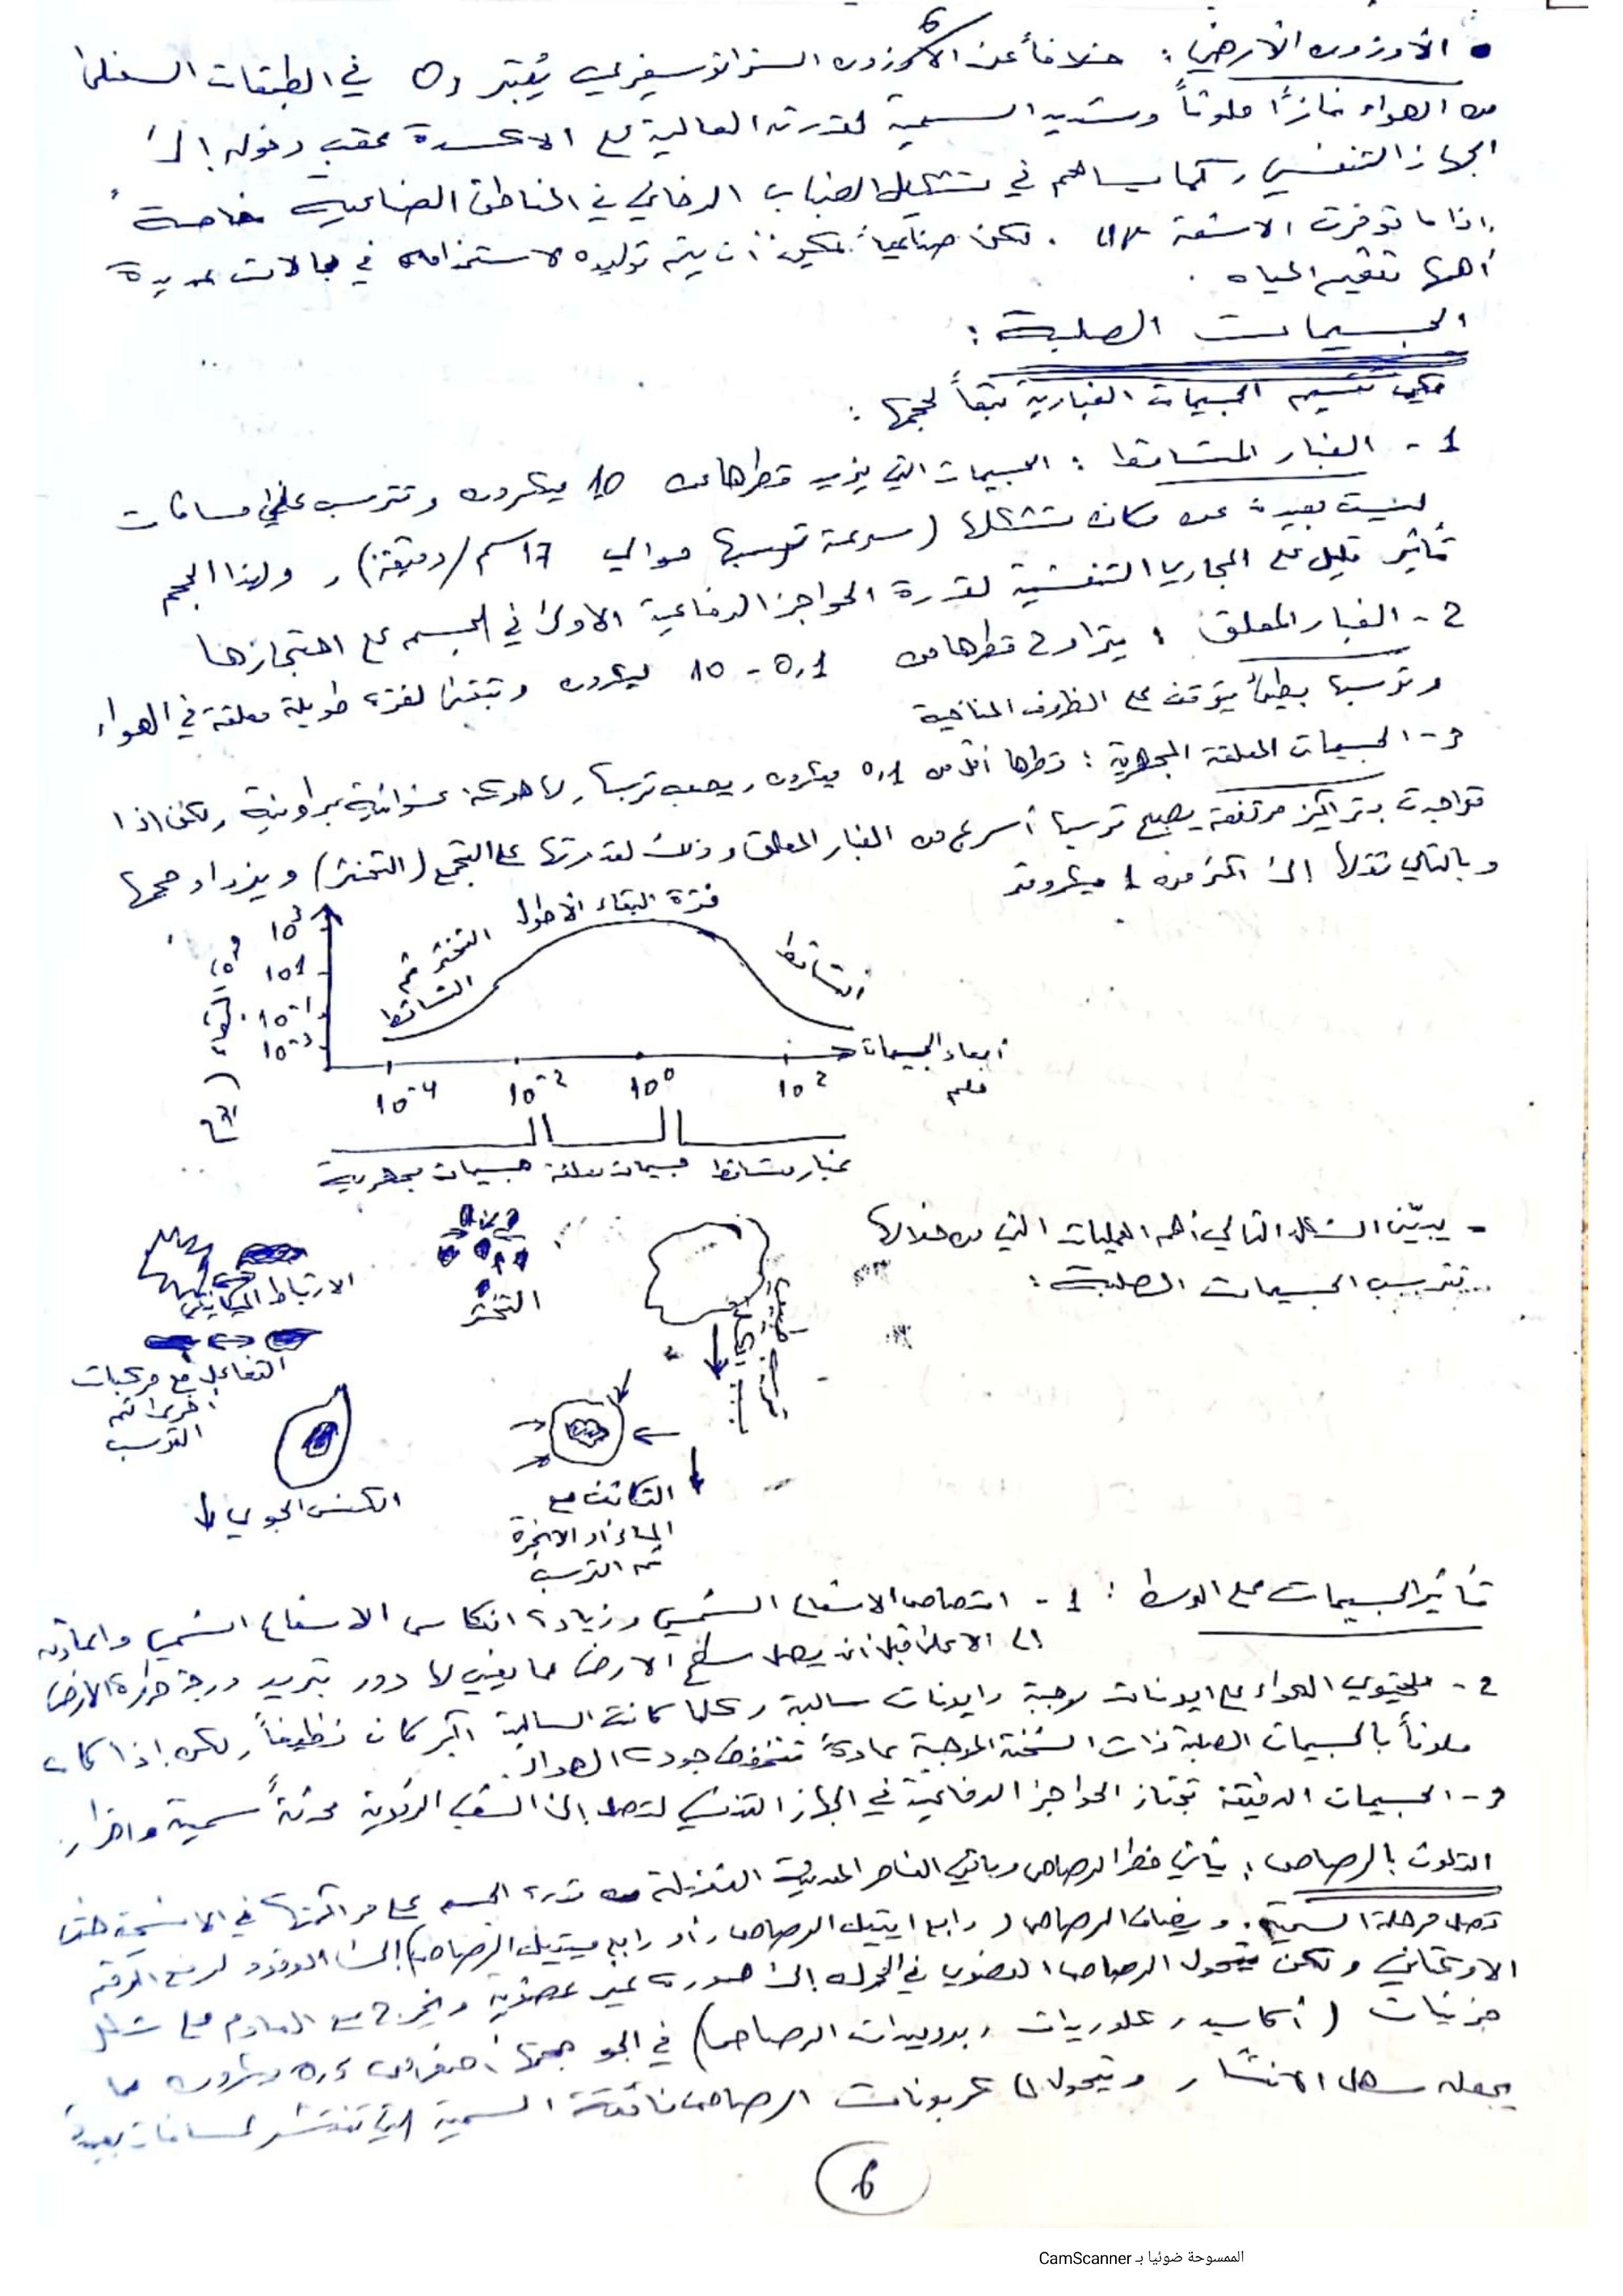 6
• الأوزون الأرضي: خلافاً عن الأوزون الستراتوسفيري يُعتبر O3 في الطبقات السفلى
من الهواء غازاً ملوثاً وشديد السمية لقدرته العالية على الاكسدة عقب دخوله إلى
الجهاز التنفسي، كما يساهم في تشكيل الضباب الدخاني في المناطق الصناعية خاصةً
إذا ما توفرت الاشعة UV. ولكن صناعياً يمكن أن يتم توليده لاستخدامه في مجالات عديدة
أهمها تعقيم المياه.
الجسيمات الصلبة:
يمكن تقسيم الجسيمات الغبارية تبعاً لحجمها:
1 - الغبار المتساقط: الجسيمات التي يزيد قطرها عن 10 ميكرون وتترسب على مسافات
ليست بعيدة عن مكان تشكلها (سرعة ترسبها حوالي 17 سم/دقيقة)، ولهذا الحجم
تأثير قليل على المجاري التنفسية لقدرة الحواجز الدفاعية الاولى في الجسم على احتجازها
2 - الغبار المعلق: يتراوح قطرها من 0,1 - 10 ميكرون وتبقى لفترة طويلة معلقة في الهواء
وترسبها بطيئ يتوقف على الظروف المناخية
3 - الجسيمات المعلقة المجهرية: قطرها أقل من 0,1 ميكرون، يصعب ترسبها، لها حركة عشوائية براونية، ولكن اذا
تواجدت بتراكيز مرتفعة يصبح ترسبها أسرع من الغبار المعلق وذلك لقدرتها على التجمع (التخثر) ويزداد حجمها
وبالتالي ثقلها إلى أكثر من 1 ميكرون
فترة البقاء الاطول
التخثر ثم
التساقط
التساقط
فترة البقاء (
10³
10¹
10⁻¹
10⁻³
10⁻⁴ 10⁻² 10⁰ 10²
أبعاد الجسيمات
ملم
غبار متساقط جسيمات معلقة جسيمات مجهرية
- يبيّن الشكل التالي أهم العمليات التي من خلالها
تترسب الجسيمات الصلبة:
الارتباط الميكانيكي
التخثر
التفاعل مع مركبات
اخرى ثم
الترسب
الكنس الجوي
التكاثف مع
الماء أو الابخرة
ثم الترسب
تأثير الجسيمات على الوسط: 1 - امتصاص الاشعاع الشمسي وزيادة انعكاس الاشعاع الشمسي واعادته
إلى الاعلى قبل أن يصل سطح الارض مما يعني لها دور بتبريد درجة حرارة الارض
2 - يحتوي الهواء على ايونات موجبة وايونات سالبة وكلما كانت السالبة أكبر كان نظيفاً، ولكن إذا كان
ملوثاً بالجسيمات الصلبة ذات الشحنة الموجبة عادةً تنخفض جودة الهواء.
3 - الجسيمات الدقيقة تجتاز الحواجز الدفاعية في الجهاز التنفسي لتصل إلى الشعب الرئوية محدثةً سمية واضرار.
التلوث بالرصاص: يأتي خطر الرصاص وباقي العناصر المعدنية الثقيلة من قدرة الجسم على مراكمتها في الانسجة حتى
تصل مرحلة السمية. ويضاف الرصاص (رابع ايتيل الرصاص، أو رابع ميتيل الرصاص) إلى الوقود لرفع الرقم
الاوكتاني ولكن يتحول الرصاص العضوي في المحرك إلى صورة غير عضوية ويخرج من العادم على شكل
جزيئات (أكاسيد، كلوريدات، بروميدات الرصاص) في الجو حجمها أصغر من 0,5 ميكرون مما
يجعله سهل الانتشار، ويتحول إلى كربونات الرصاص فائقة السمية التي تنتشر لمسافات بعيدة
6
الممسوحة ضوئيا بـ CamScanner